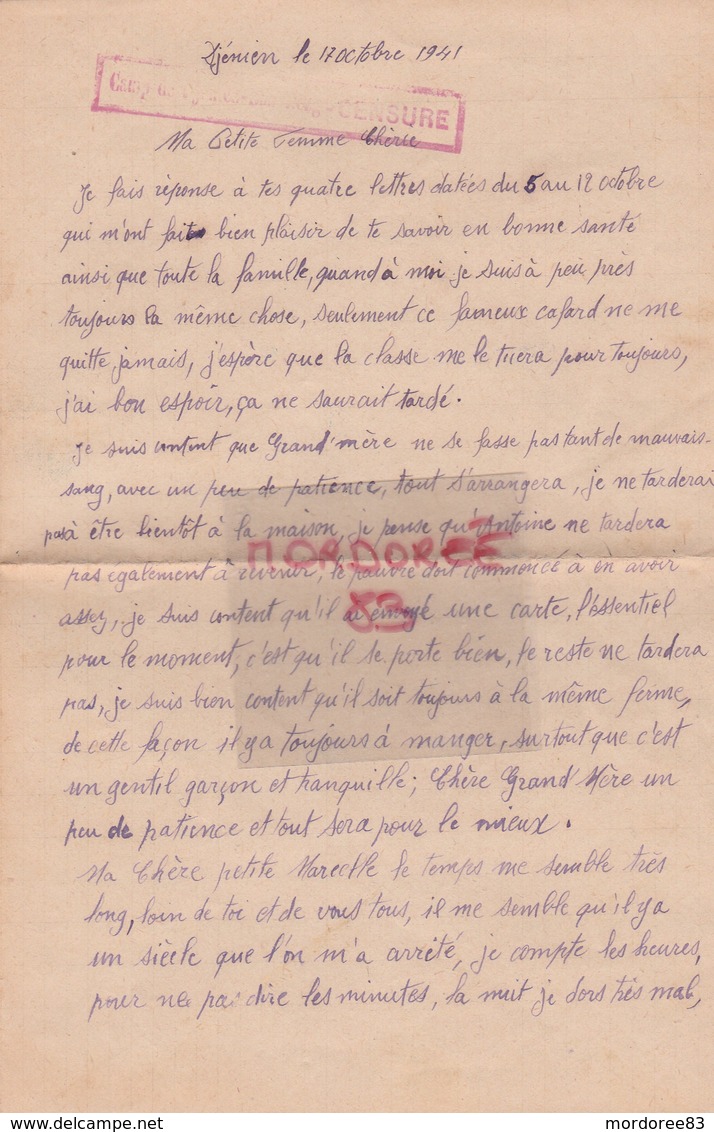 Djénien le 17 octobre 1941
Camp de CENSURE
Ma Petite Femme Chérie
Je fais réponse à tes quatre lettres datées du 5 au 12 octobre
qui m'ont fait bien plaisir de te savoir en bonne santé
ainsi que toute la famille, quand à moi je suis à peu près
toujours la même chose, seulement ce fameux cafard ne me
quitte jamais, j'espère que la classe me le tuera pour toujours,
j'ai bon espoir, ça ne saurait tardé.
Je suis content que Grand'mère ne se fasse pas tant de mauvais-
sang, avec un peu de patience, tout s'arrangera, je ne tarderai
pas à être bientôt à la maison, je pense qu'Antoine ne tardera
MORDOREE
pas également à revenir, le pauvre doit commencé à en avoir
83
assez, je suis content qu'il ai envoyé une carte, l'éssentiel
pour le moment, c'est qu'il se porte bien, le reste ne tardera
pas, je suis bien content qu'il soit toujours à la même ferme,
de cette façon il y a toujours à manger, surtout que c'est
un gentil garçon et tranquille; Chère Grand'Mère un
peu de patience et tout sera pour le mieux.
Ma Chère petite Marcelle le temps me semble très
long, loin de toi et de vous tous, il me semble qu'il y a
un siècle que l'on m'a arrêté, je compte les heures,
pour ne pas dire les minutes, la nuit je dors très mal,
delcampe.net
mordoree83